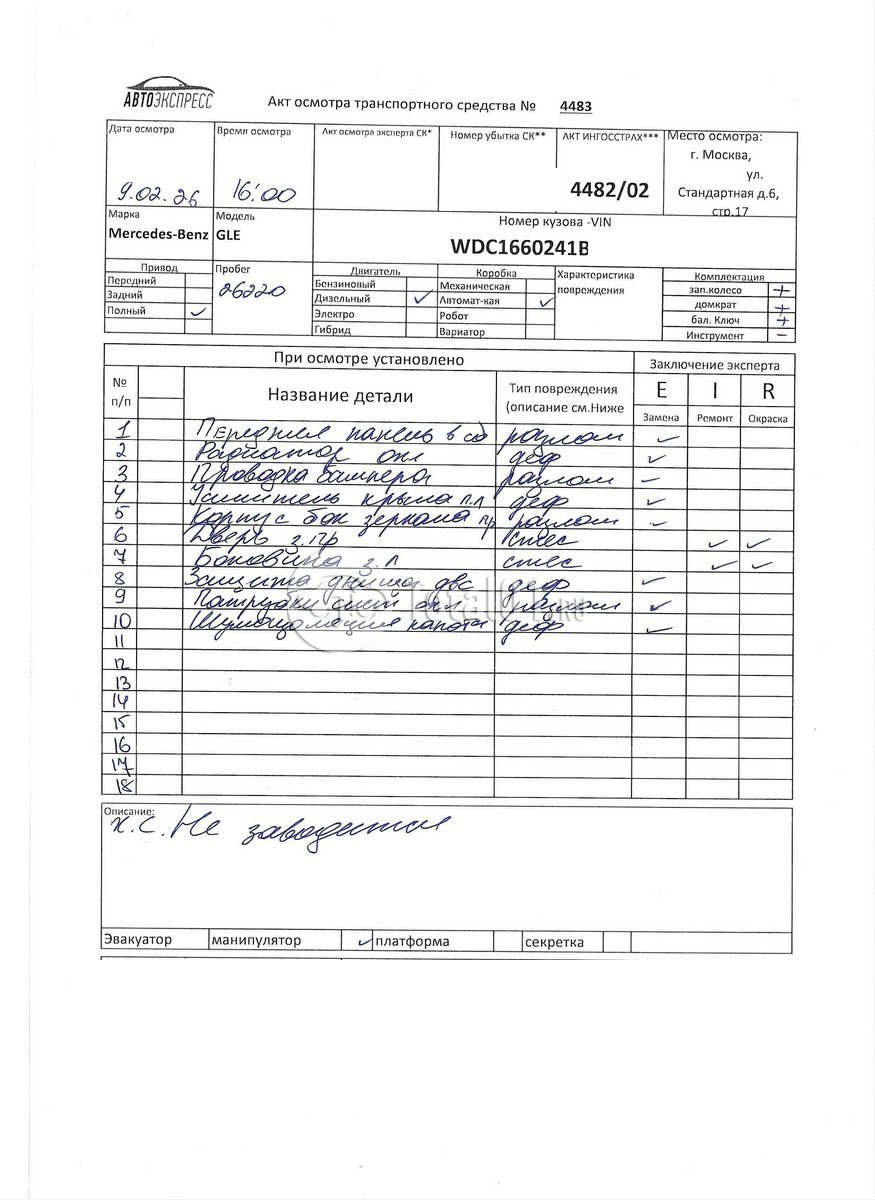 АВТОЭКСПРЕСС
Акт осмотра транспортного средства № 4483
Дата осмотра
9.02.26
Время осмотра
16:00
Акт осмотра эксперта СК*
Номер убытка СК**
АКТ ИНГОССТРАХ***
4482/02
Место осмотра:
г. Москва,
ул.
Стандартная д.6,
стр.17
Марка
Mercedes-Benz
Модель
GLE
Номер кузова -VIN
WDC1660241B
Привод
Передний
Задний
Полный ✓
Пробег
26220
Двигатель
Бензиновый
Дизельный ✓
Электро
Гибрид
Коробка
Механическая
Автомат-кая ✓
Робот
Вариатор
Характеристика
повреждения
Комплектация
зап.колесо +
домкрат +
бал. Ключ +
Инструмент -
При осмотре установлено
Заключение эксперта
№
п/п
Название детали
Тип повреждения
(описание см.Ниже
E I R
Замена Ремонт Окраска
1 Передняя панель в сб разлом ✓
2 Радиатор охл деф ✓
3 Проводка бампера разлом ✓
4 Усилитель крыла п.л деф ✓
5 Корпус бок зеркала пр разлом ✓
6 Дверь з.пр стес ✓ ✓
7 Боковина з.л стес ✓ ✓
8 Защита днища двс деф ✓
9 Патрубки сист охл разлом ✓
10 Шумоизоляция капота деф ✓
11
12
13
14
15
16
17
18
Описание:
Х.С. Не заводится
Эвакуатор манипулятор ✓ платформа секретка